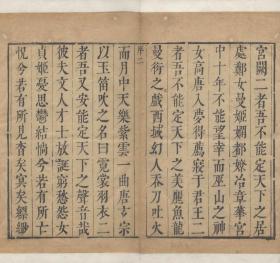 宮闕二者吾不能定天下之居
處鄭女曼姬媚都冶章華宮
中十年不能望幸而巫山之神
女高唐入夢得薦寢于君王二
者吾不能定天下之美麗魚龍
曼衍之戲西域幻人吞刀吐火
序 二
而月中天樂紫雲一曲唐玄宗
以玉笛吹之名曰霓裳羽衣二
者吾又安能定天下之聲音哉
彼夫文人才士放誕窮愁怨女
貞姬憂思鬱結惝兮若有所亡
怳兮若有所見杳矣冥矣縹緲